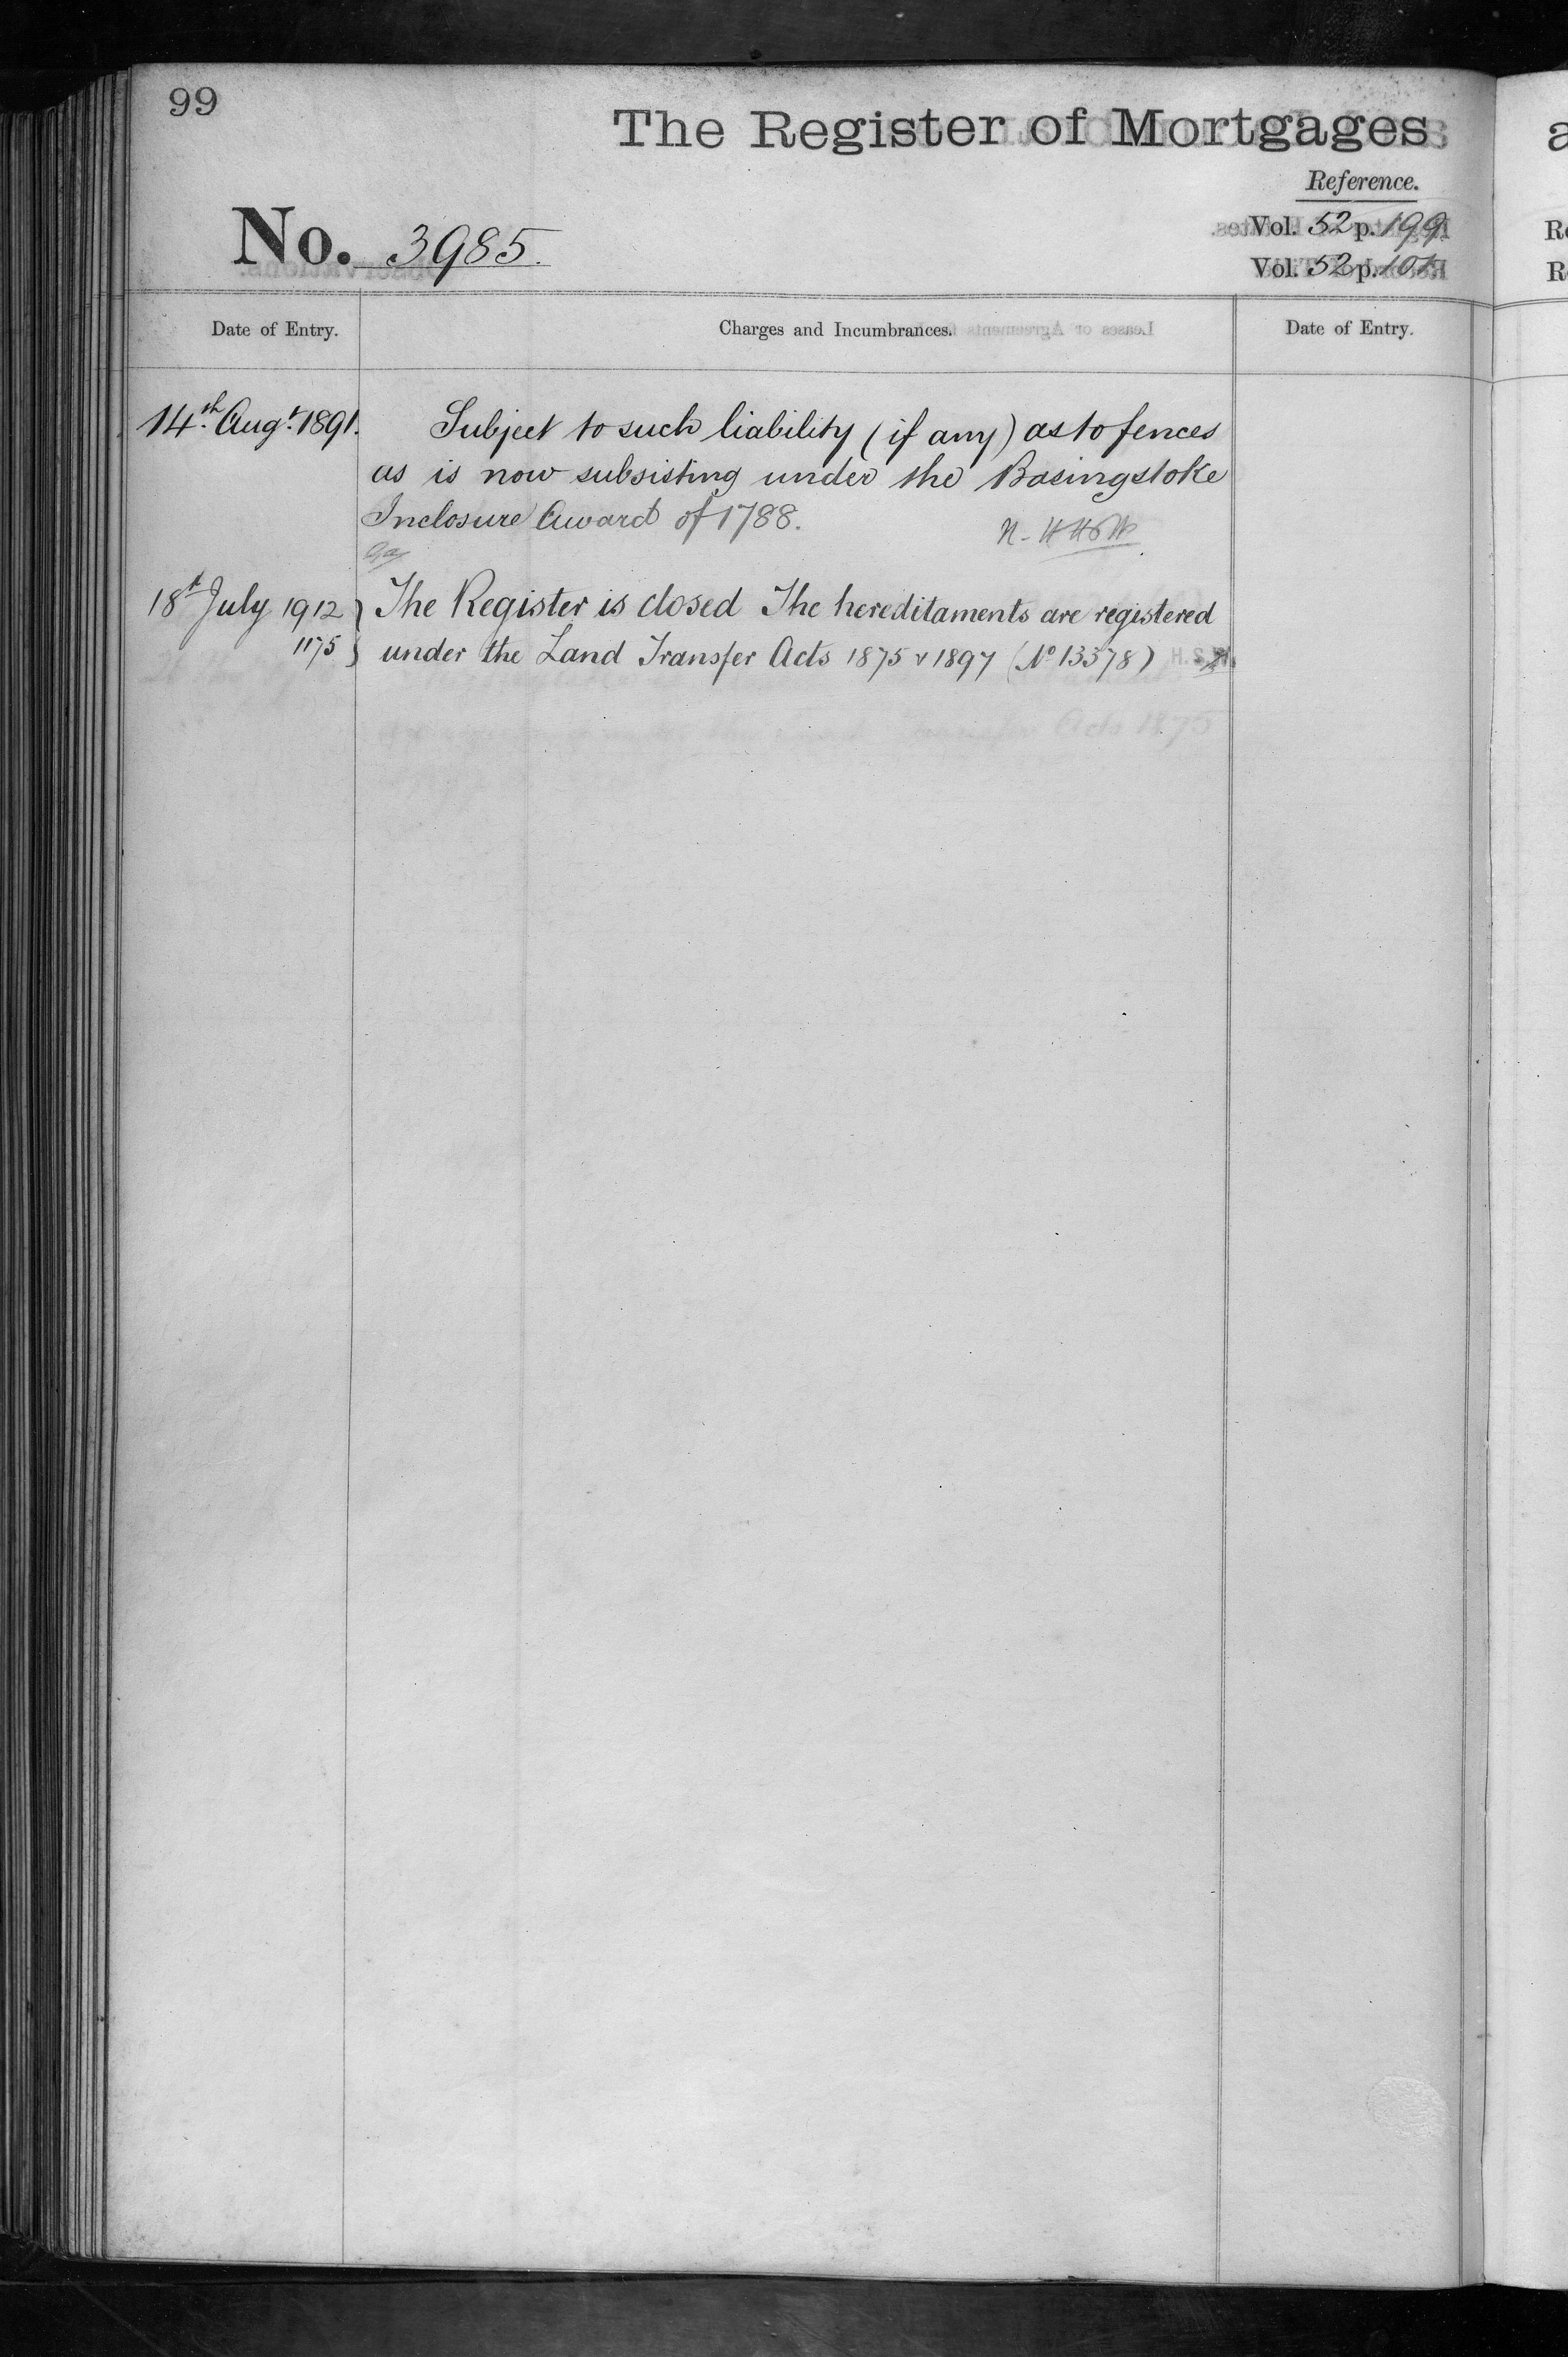 99
The Register of Mortgages
Reference.
No. 3985.
Vol. 52 p. 199.
Vol. 52 p. 101.
Date of Entry.
Charges and Incumbrances.
Date of Entry.
14th Augt 1891.
Subject to such liability (if any) as to fences
as is now subsisting under the Basingstoke
Inclosure Award of 1788.
18th July 1912
The Register is closed The hereditaments are registered
1175
under the Land Transfer Acts 1875 & 1897 (No 13378)